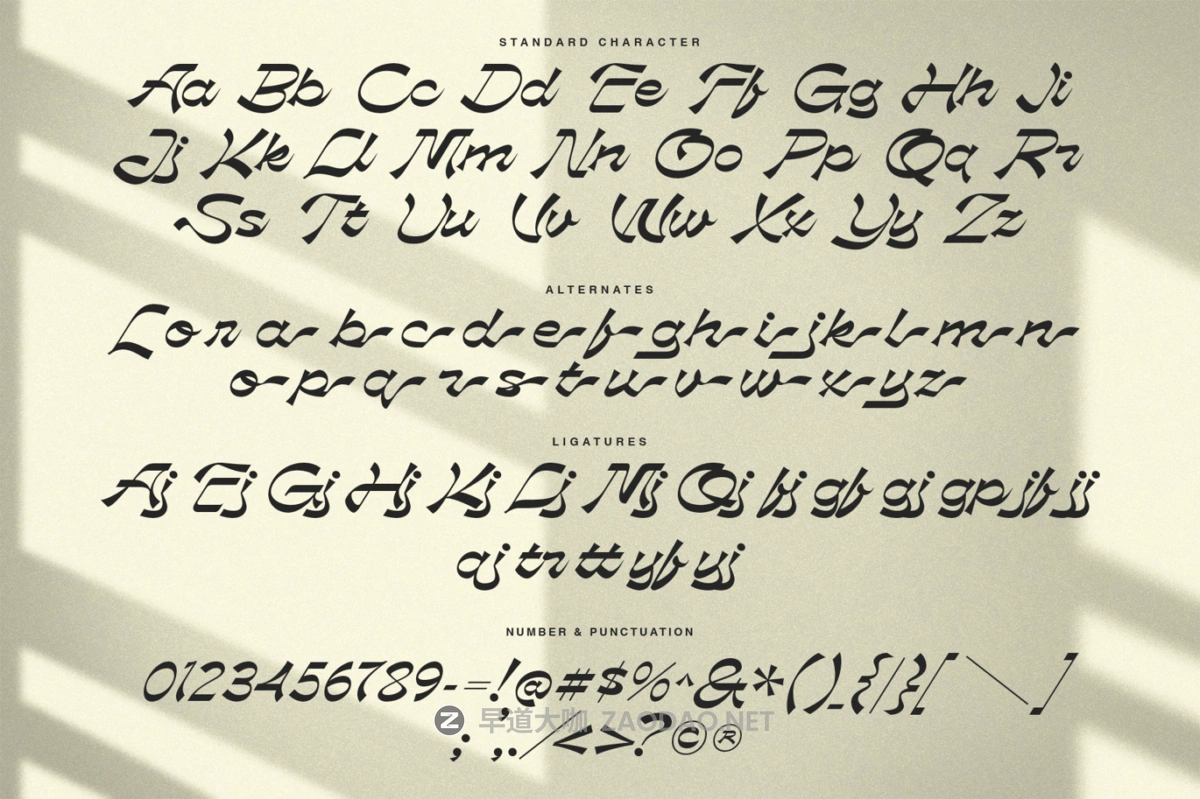 STANDARD CHARACTER
Aa Bb Cc Dd Ee Ff Gg Hh Ii
Jj Kk Ll Mm Nn Oo Pp Qq Rr
Ss Tt Uu Vv Ww Xx Yy Zz
ALTERNATES
L o r a b c d e f g h i j k l m n
o p q r s t u v w x y z
LIGATURES
Aj Ej Gj Hj Kj Lj Mj Qj fj gf gj gp jf jj
qj tr tt yf yj
NUMBER & PUNCTUATION
0123456789-=!@#$%^&*()_{|}[\]
;',./<>?©®
早道大咖 ZAODAO.NET